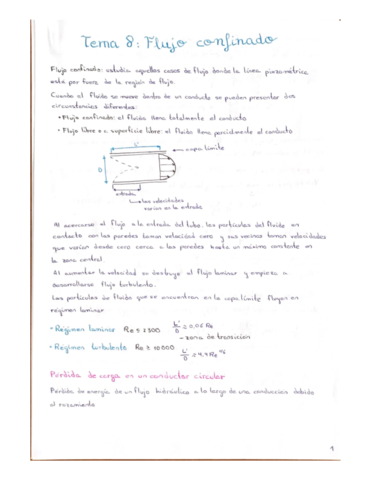 Tema 8: Flujo confinado
Flujo confinado: estudia aquellos casos de flujo donde la línea piezométrica
esta por fuera de la región de flujo.
Cuando el fluido se mueve dentro de un conducto se pueden presentar dos
circunstancias diferentes:
• Flujo confinado: el fluido llena totalmente el conducto
• Flujo libre o a superficie libre: el fluido llena parcialmente el conducto
L'
capa límite
D
entrada
las velocidades
varían en la entrada
Al acercarse el flujo a la entrada del tubo, las partículas del fluido en
contacto con las paredes toman velocidad cero y sus vecinas toman velocidades
que varían desde cero cerca a las paredes hasta un máximo constante en
la zona central
Al aumentar la velocidad se destruye el flujo laminar y empieza a
desarrollarse flujo turbulento.
Las partículas de fluido que se encuentran en la capa límite fluyen en
régimen laminar
• Régimen laminar Re ≤ 2300 L'/D = 0,06 Re
- zona de transición
• Régimen turbulento Re ≥ 10000 L'/D = 4,4 Re^1/6
Pérdida de carga en un conductor circular
Pérdida de energía de un flujo hidráulico a lo largo de una conducción debido
al rozamiento
1